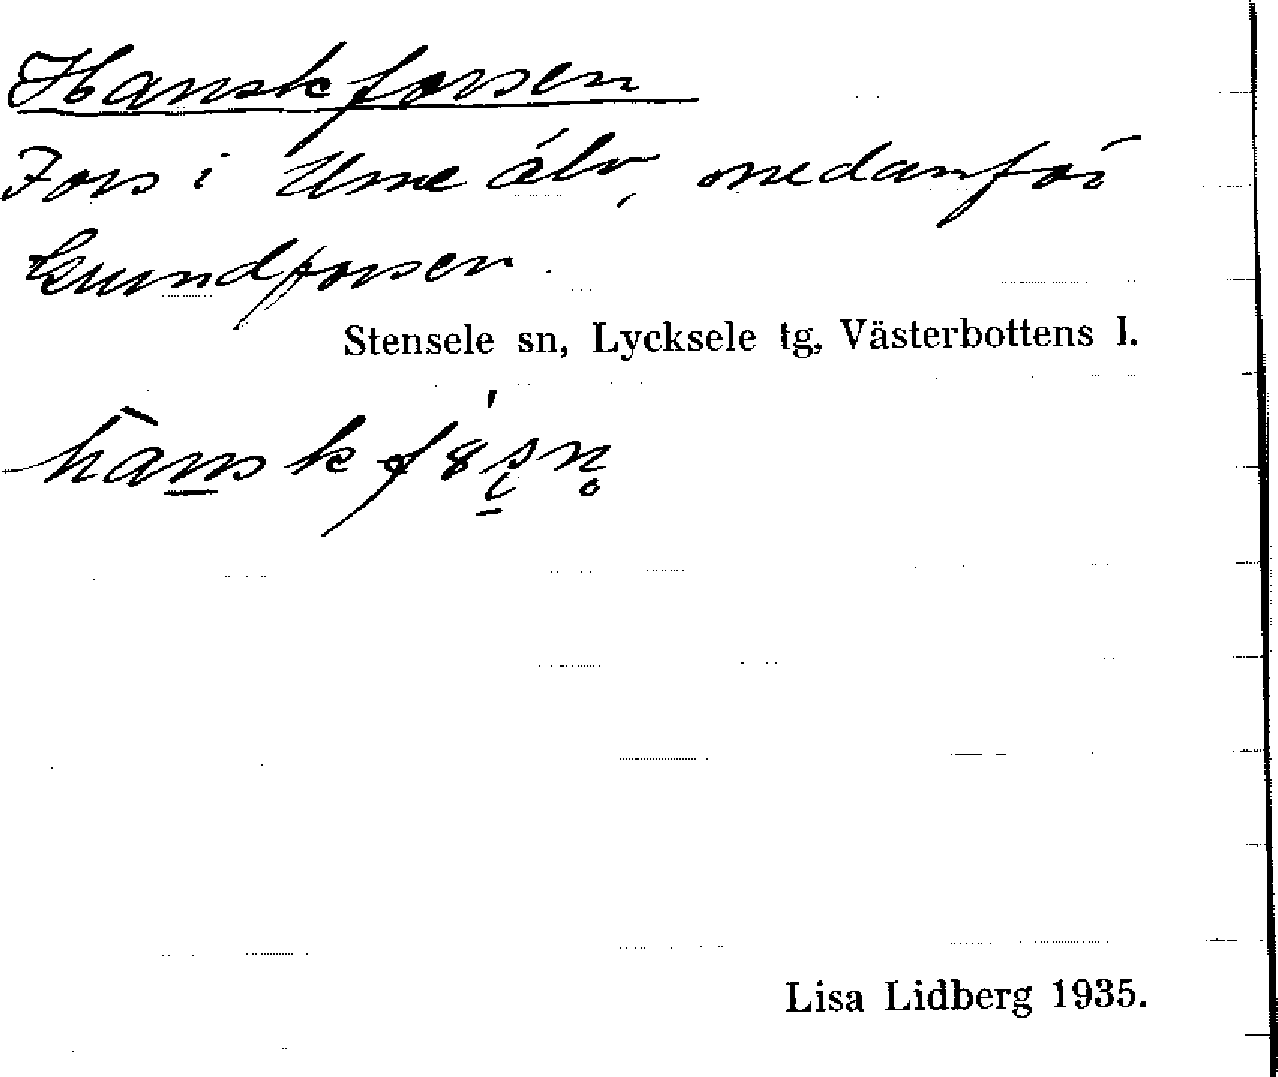 Hanskforsen
Fors i Ume älv, nedanför
Gundforsen.
Stensele sn, Lycksele tg, Västerbottens l.
Lisa Lidberg 1935.